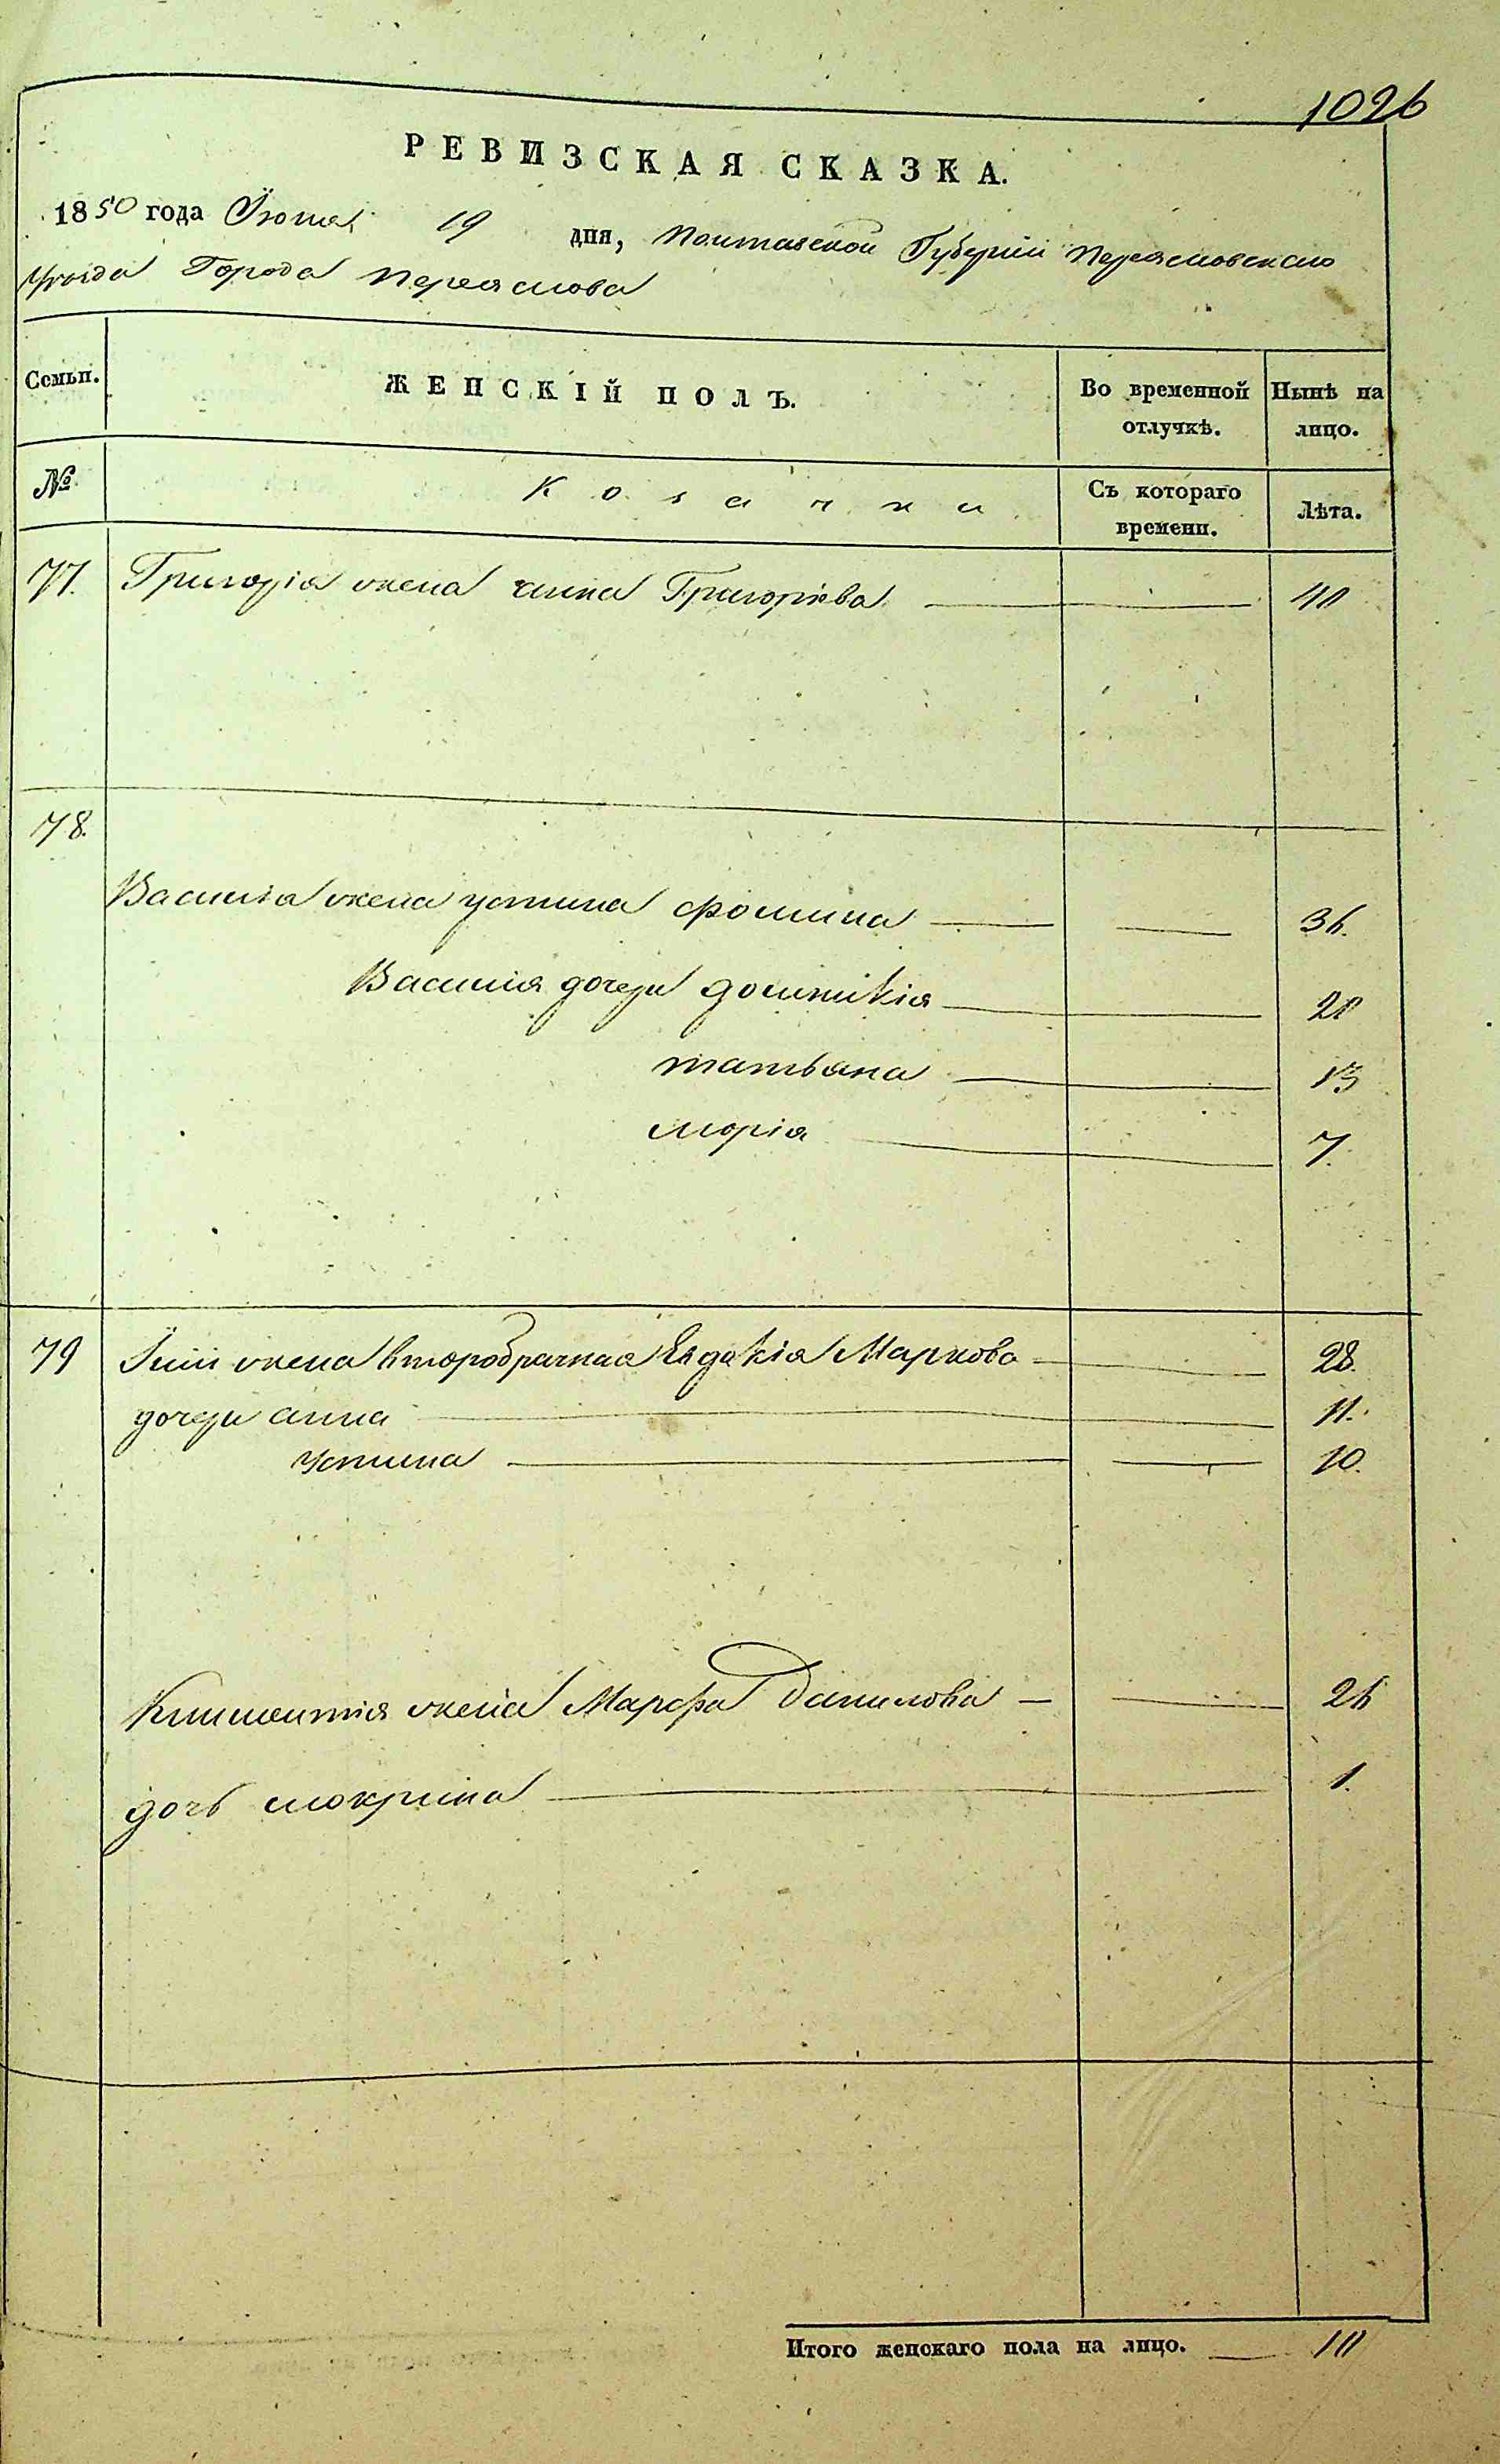 1026
РЕВИЗСКАЯ СКАЗКА.
1850 года Іюня 19 дня, Полтавской Губерніи Переясловскаго
Уѣзда Города Переяслова
Семьи. ЖЕНСКІЙ ПОЛЪ. Во временной отлучкѣ. Нынѣ на лицо.
№ Козачки Съ котораго времени. Лѣта.
77. Григорія жена анна Григоріева 40
78.
Василія жена устина фомина 36.
Василія дочери домникія 20
татьяна 13
морія 7.
79 жена второбрачная Евдокія Маркова 28.
дочери анна 11.
устина 10.
Климентія жена Марфа Данилова 26
дочь мокрина 1.
Итого женскаго пола на лицо. 10